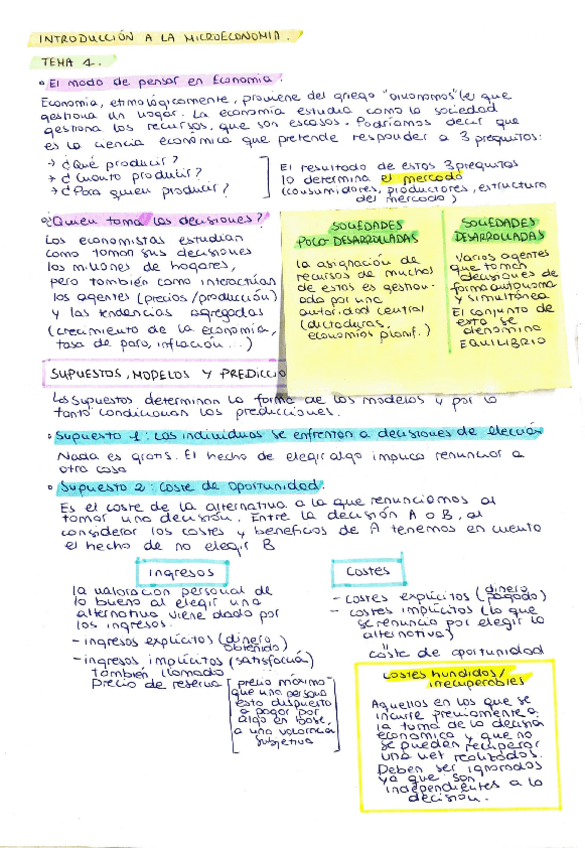 INTRODUCCIÓN A LA MICROECONOMIA.
TEMA 1.
• El modo de pensar en Economía.
Economía, etimológicamente, proviene del griego "oikonomos" (el que
gestiona un hogar. La economía estudia como la sociedad
gestiona los recursos, que son escasos. Podríamos decir que
es la ciencia económica que pretende responder a 3 preguntas:
→ ¿Qué producir?
→ ¿Cuanto producir?
→ ¿Para quien producir?
El resultado de estos 3 preguntas
lo determina el mercado
(consumidores, productores, estructura
del mercado)
¿Quien toma las decisiones?
Los economistas estudian
como toman sus decisiones
los millones de hogares,
pero también como interactúan
los agentes (precios/producción)
y las tendencias agregadas
(crecimiento de la economía,
tasa de paro, inflación...)
SOCIEDADES
POCO DESARROLLADAS
la asignación de
recursos de muchos
de estos es gestion-
ada por una
autoridad central
(dictaduras,
economías planif.)
SOCIEDADES
DESARROLLADAS
Varios agentes
que toman
decisiones de
forma autónoma
y simultánea
El conjunto de
esto se
denomina
EQUILIBRIO
SUPUESTOS, MODELOS Y PREDICCIO
Los supuestos determinan la forma de los modelos y por lo
tanto condicionan las predicciones.
• Supuesto 1: Los individuos se enfrentan a decisiones de elección
Nada es gratis. El hecho de elegir algo implica renunciar a
otra cosa
• Supuesto 2: Coste de oportunidad.
Es el coste de la alternativa a la que renunciamos al
tomar una decisión. Entre la decisión A o B, al
considerar los costes y beneficios de A tenemos en cuenta
el hecho de no elegir B
Ingresos
la valoración personal de
lo bueno al elegir una
alternativa viene dado por
los ingresos.
- ingresos explícitos (dinero
obtenido)
- ingresos implícitos (satisfacción)
también llamado
precio de reserva
precio máximo
que una persona
esta dispuesta
a pagar por
algo en base,
a una valoración
subjetiva
Costes
- costes explícitos (dinero
pagado)
- costes implícitos (lo que
se renuncia por elegir la
alternativa)
"
coste de oportunidad
costes hundidos/
irrecuperables
Aquellos en los que se
incurre previamente a
la toma de la decisión
económica y que no
se pueden recuperar
una vez realizados.
Deben ser ignorados
ya que son
independientes a la
decisión.